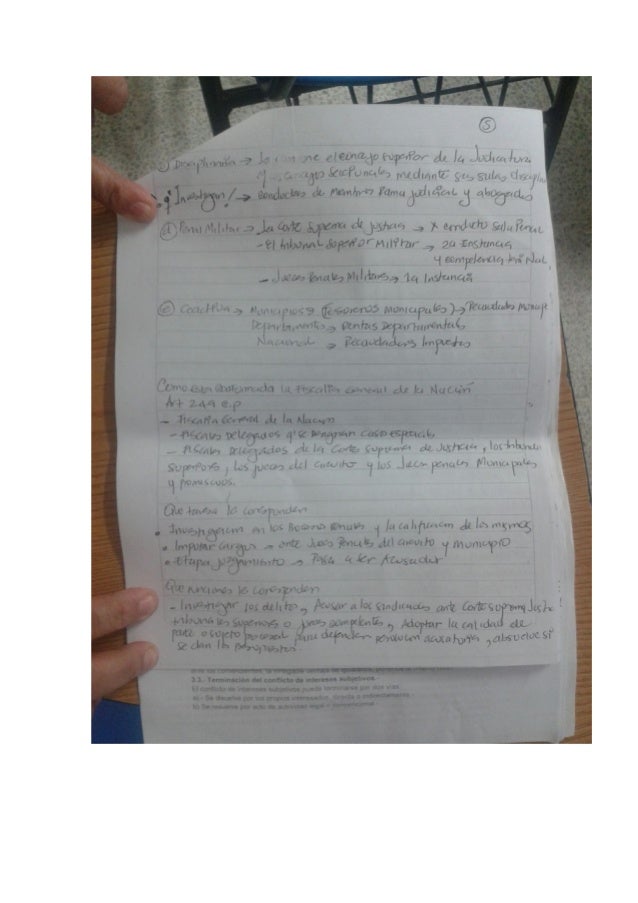 5
Disciplinaria → la consejo superior de la Judicatura
y consejos seccionales mediante sus salas discipl
Investigan! → conductas de miembros Rama judicial y abogados
d) Penal Militar → La Corte Suprema de justicia → x conducto Sala Penal
- El tribunal Superior Militar → 2a Instancia
y competencia Nal
- Jueces Penales Militares → 1a Instancia
e) Coactiva → Municipios → (Tesoreros municipales) → Recaudados
Departamento → Rentas Departamentales
Nacional → Recaudadores Impuestos
Como esta la Fiscalia General de la Nación
Art 249 c.p
- Fiscalia General de la Nacion
- Fiscales Delegados q' se Casos especiales
- Fiscales Delegados de la Corte Suprema de Justicia, los tribunales
Superiores, los jueces del circuito y los Jueces penales Municipales
y promiscuos.
Que tareas le corresponden
• Investigacion en los Penales y la calificacion de los mismos
• Imputar cargos → ante Jueces Penales del circuito y municipio
• Etapa juzgamiento → Pasa a ser Acusador
Que funciones le corresponden
- Investigar los delitos, Acusar a los sindicados ante Corte suprema Justic
tribunales superiores o jueces competentes, Adoptar la calidad de
parte o sujeto procesal para defender resolucion acusatoria, absuelve si
se dan los presupuestos.
3.3.- Terminación del conflicto de intereses subjetivos.-
El conflicto de intereses subjetivos puede terminarse por dos vías:
a).- Se disuelve por los propios interesados, directa o indirectamente
b) Se resuelve por acto de autoridad legal o convencional